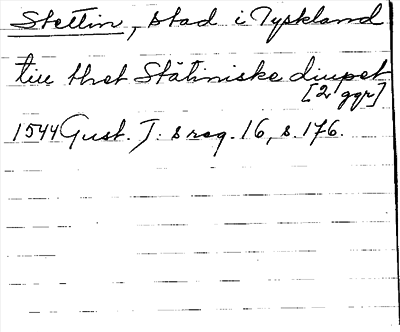 Stettin, stad i Tyskland
till thet Stätiniske diupet
[2 ggr]
1544 Gust. I: s reg. 16, s. 176.